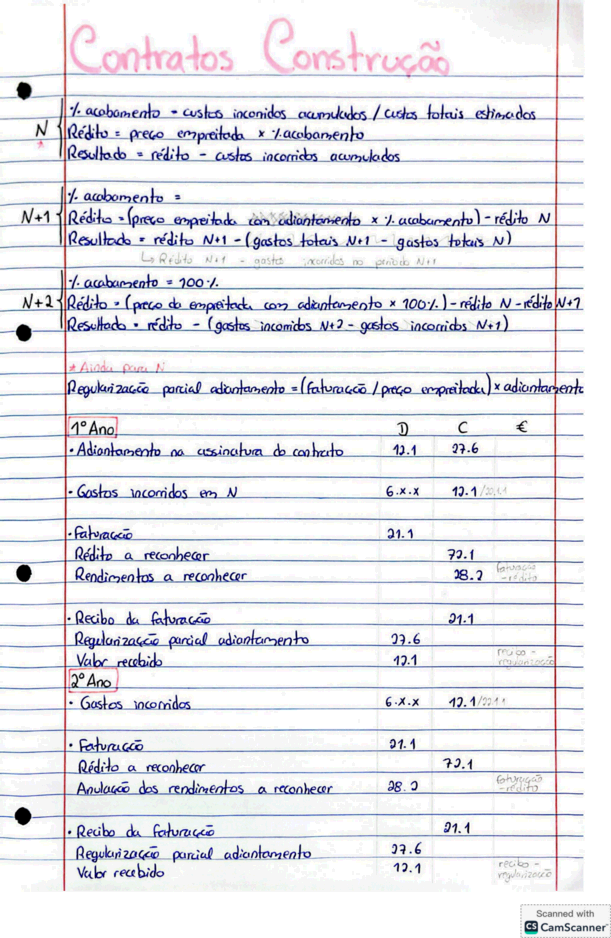 Contratos Construção
N
% acabamento = custos incorridos acumulados / custos totais estimados
Rédito = preço empreitada x % acabamento
Resultado = rédito - custos incorridos acumulados
N+1
% acabamento =
Rédito = (preço empreitada com adiantamento x % acabamento) - rédito N
Resultado = rédito N+1 - (gastos totais N+1 - gastos totais N)
↳ Rédito N+1 - gastos incorridos no período N+1
N+2
% acabamento = 100%
Rédito = (preço da empreitada com adiantamento x 100%) - rédito N - rédito N+1
Resultado = rédito - (gastos incorridos N+2 - gastos incorridos N+1)
* Ainda para N
Regularização parcial adiantamento = (faturação / preço empreitada) x adiantamento
1º Ano D C €
• Adiantamento na assinatura do contrato 12.1 27.6
• Gastos incorridos em N 6.x.x 12.1/22.1.1
• Faturação 21.1
Rédito a reconhecer 72.1
Rendimentos a reconhecer 28.2 faturação - rédito
• Recibo da faturação 21.1
Regularização parcial adiantamento 27.6
Valor recebido 12.1 recibo - regularização
2º Ano
• Gastos incorridos 6.x.x 12.1/22.1.1
• Faturação 21.1
Rédito a reconhecer 72.1
Anulação dos rendimentos a reconhecer 28.2 faturação - rédito
• Recibo da faturação 21.1
Regularização parcial adiantamento 27.6
Valor recebido 12.1 recibo - regularização
Scanned with
CS CamScanner